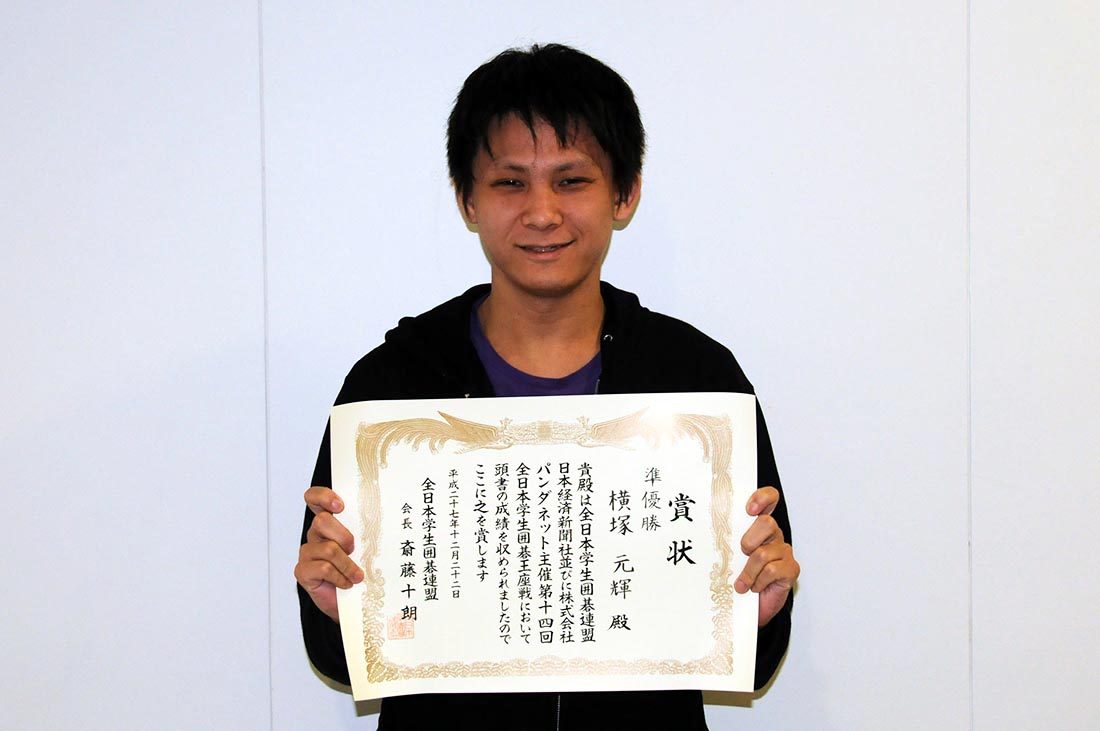 賞状
準優勝
横塚 元輝 殿
貴殿は全日本学生囲碁連盟
日本経済新聞社並びに株式会社
パンダネット主催第十四回
全日本学生囲碁王座戦において
頭書の成績を収められましたので
ここに之を賞します
平成二十七年十二月二十二日
全日本学生囲碁連盟
会長 斎藤十朗